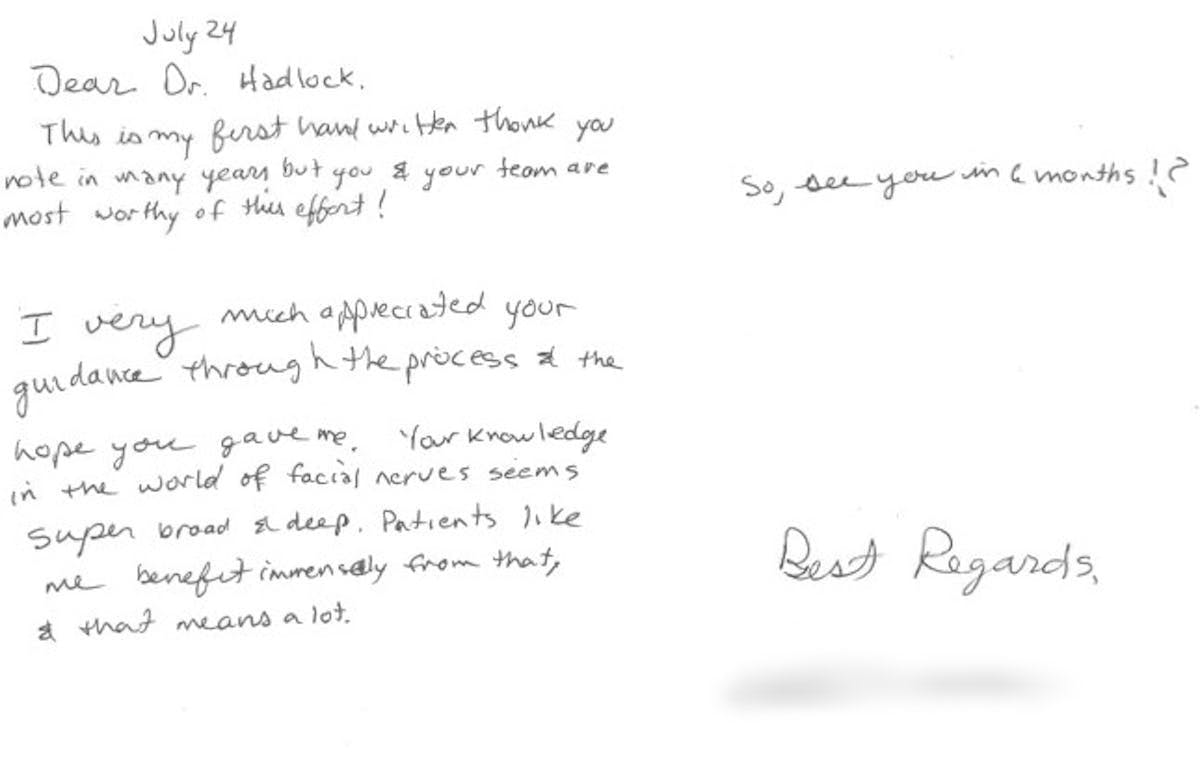 July 24
Dear Dr. Hadlock.
This is my first hand written thank you
note in many years but you & your team are
most worthy of this effort!
I very much appreciated your
guidance through the process & the
hope you gave me. Your knowledge
in the world of facial nerves seems
super broad & deep. Patients like
me benefit immensely from that,
& that means a lot.
So, see you in 6 months!?
Best Regards,